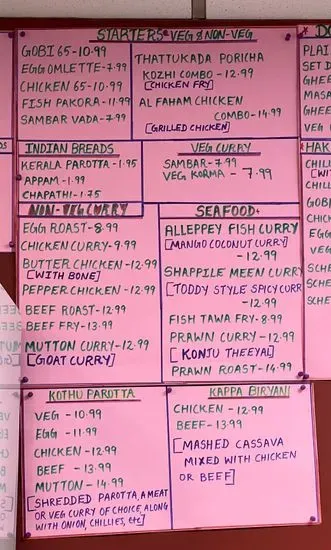 STARTERS VEG & NON-VEG
GOBI 65-10.99
EGG OMLETTE-7.99
CHICKEN 65-10.99
FISH PAKORA-11.99
SAMBAR VADA-7.99
THATTUKADA PORICHA
KOZHI COMBO-12.99
[CHICKEN FRY]
AL FAHAM CHICKEN
COMBO-14.99
[GRILLED CHICKEN]
INDIAN BREADS
KERALA PAROTTA-1.95
APPAM-1.99
CHAPATHI-1.75
VEG CURRY
SAMBAR-7.99
VEG KORMA-7.99
NON-VEG CURRY
EGG ROAST-8.99
CHICKEN CURRY-9.99
BUTTER CHICKEN-12.99
[WITH BONE]
PEPPER CHICKEN-12.99
BEEF ROAST-12.99
BEEF FRY-13.99
MUTTON CURRY-12.99
[GOAT CURRY]
SEAFOOD
ALLEPPEY FISH CURRY
[MANGO COCONUT CURRY]
-12.99
SHAPPILE MEEN CURRY
[TODDY STYLE SPICY CURR
-12.99
FISH TAWA FRY-8.99
PRAWN CURRY-12.99
[KONJU THEEYAL]
PRAWN ROAST-14.99
KOTHU PAROTTA
VEG-10.99
EGG-11.99
CHICKEN-12.99
BEEF-13.99
MUTTON-14.99
[SHREDDED PAROTTA, A MEAT
OR VEG CURRY OF CHOICE, ALONG
WITH ONION, CHILLIES, etc]
KAPPA BIRYANI
CHICKEN-12.99
BEEF-13.99
[MASHED CASSAVA
MIXED WITH CHICKEN
OR BEEF]
PLAI
SET D
GHEE
MASA
GHEE
CHILL
HAK
CHILL
[WIT
CHILL
GOBI
CHICK
EGG
VEG
SCHE
SCHE
SCHE